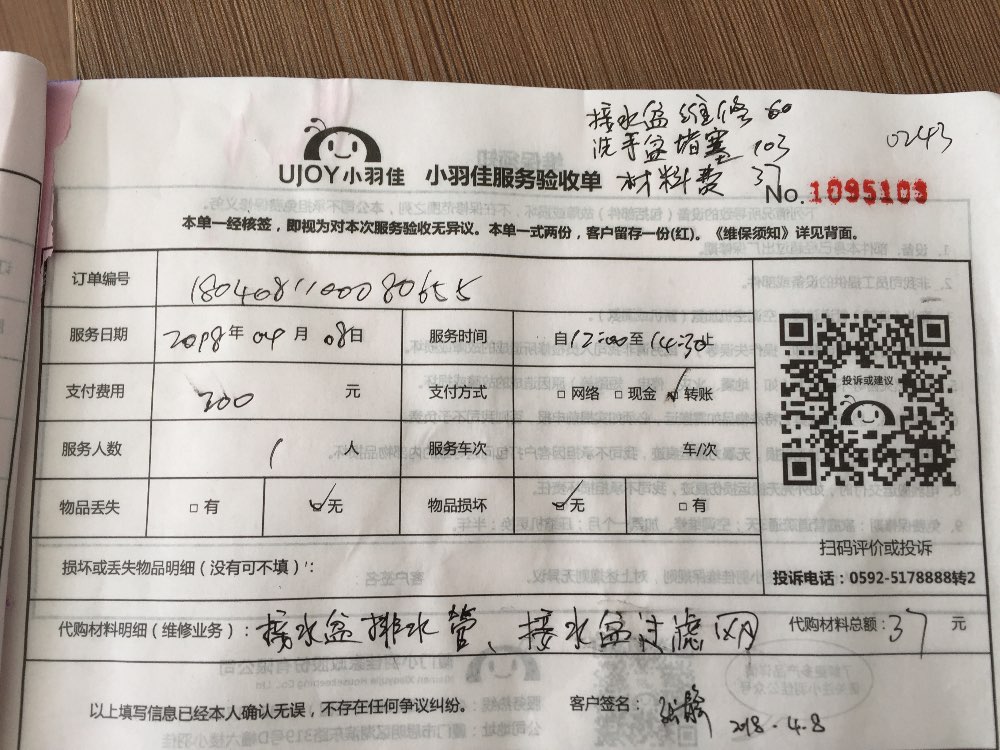 接水盆维修 60
洗手盆堵塞 103
材料费 37
0243
UJOY小羽佳 小羽佳服务验收单
No. 1095109
本单一经核签，即视为对本次服务验收无异议。本单一式两份，客户留存一份(红)。《维保须知》详见背面。
订单编号 18040811000080655
服务日期 2018年 04月 08日 服务时间 自12:00至14:30止
支付费用 200 元 支付方式 □ 网络 □ 现金 ☑ 转账
服务人数 1 人 服务车次 车/次
物品丢失 □ 有 ☑ 无 物品损坏 ☑ 无 □ 有
投诉或建议
扫码评价或投诉
投诉电话：0592-5178888转2
损坏或丢失物品明细（没有可不填）：
代购材料明细（维修业务）：接水盆排水管、接水盆过滤网 代购材料总额：37 元
以上填写信息已经本人确认无误，不存在任何争议纠纷。 客户签名：
2018.4.8